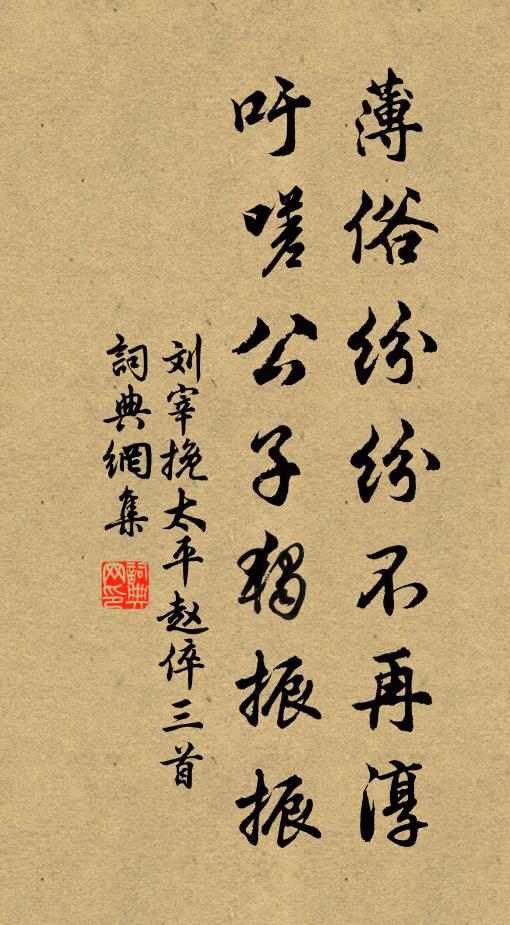 薄俗纷纷不再淳
吁嗟公子独振振
刘宰挽太平赵倅三首
詞典網集
詞典網印